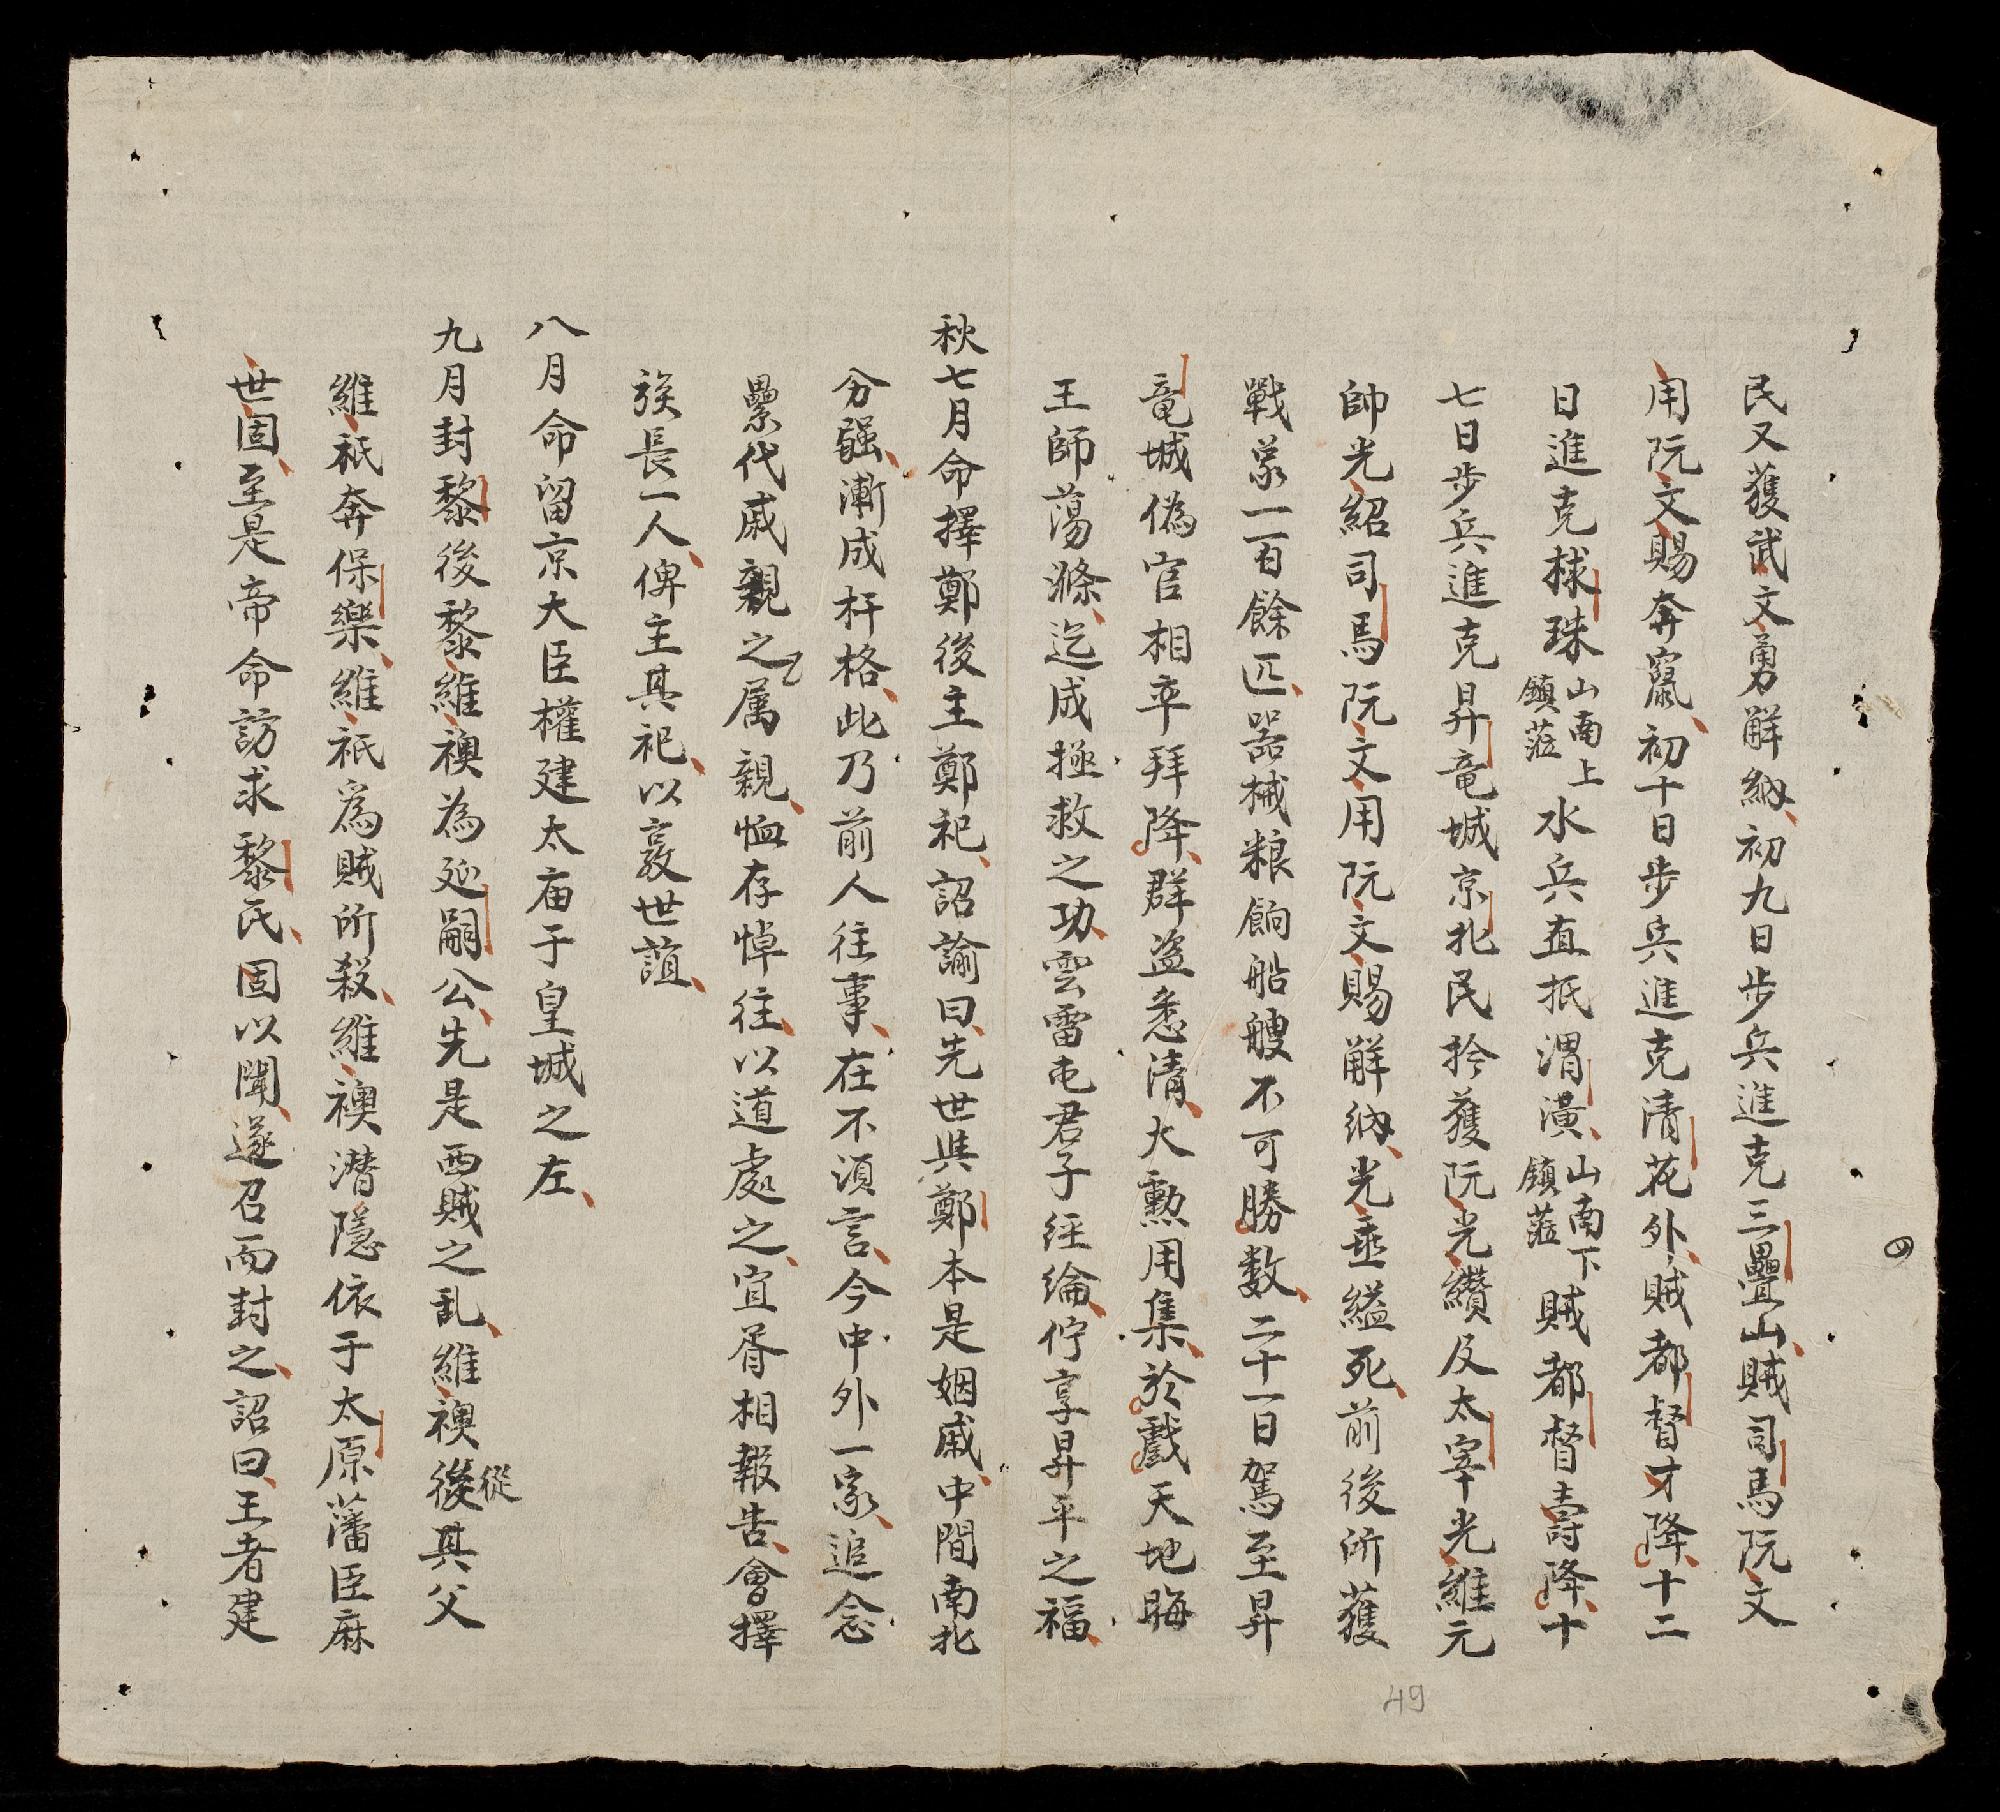 民又獲武文勇觧納初九日步兵進克三疊山賊司馬阮文
用阮文賜奔竄初十日步兵進克清花外賊都督才降十二
日進克梂珠山南上鎮蒞水兵直抵渭潢山南下鎮蒞賊都督壽降十
七日步兵進克昇竜城京北民拎獲阮光纘及太宰光維元
帥光紹司馬阮文用阮文賜觧納光垂縊死前後所獲
戰象一百餘匹器械粮餉船艘不可勝数二十一日駕至昇
竜城偽官相卒拜降群盗悉清大勳用集於戲天地晦
王師蕩滌迄成拯救之功雲雷屯君子経綸佇享昇平之福
秋七月命擇鄭後主鄭祀詔諭曰先世與鄭本是姻戚中間南北
分强漸成杆格此乃前人往事在不湏言今中外一家追念
纍代戚親之属親恤存悼往以道處之宜胥相報告會擇
族長一人俾主其祀以敦世誼
八月命留京大臣權建太庙于皇城之左
九月封黎後黎維䙩為延嗣公先是西賊之乱維䙩後從其父
維祇奔保樂維祇爲賊所殺維䙩潜隱依于太原藩臣麻
世固至是帝命訪求黎氏固以聞遂召而封之詔曰王者建
49